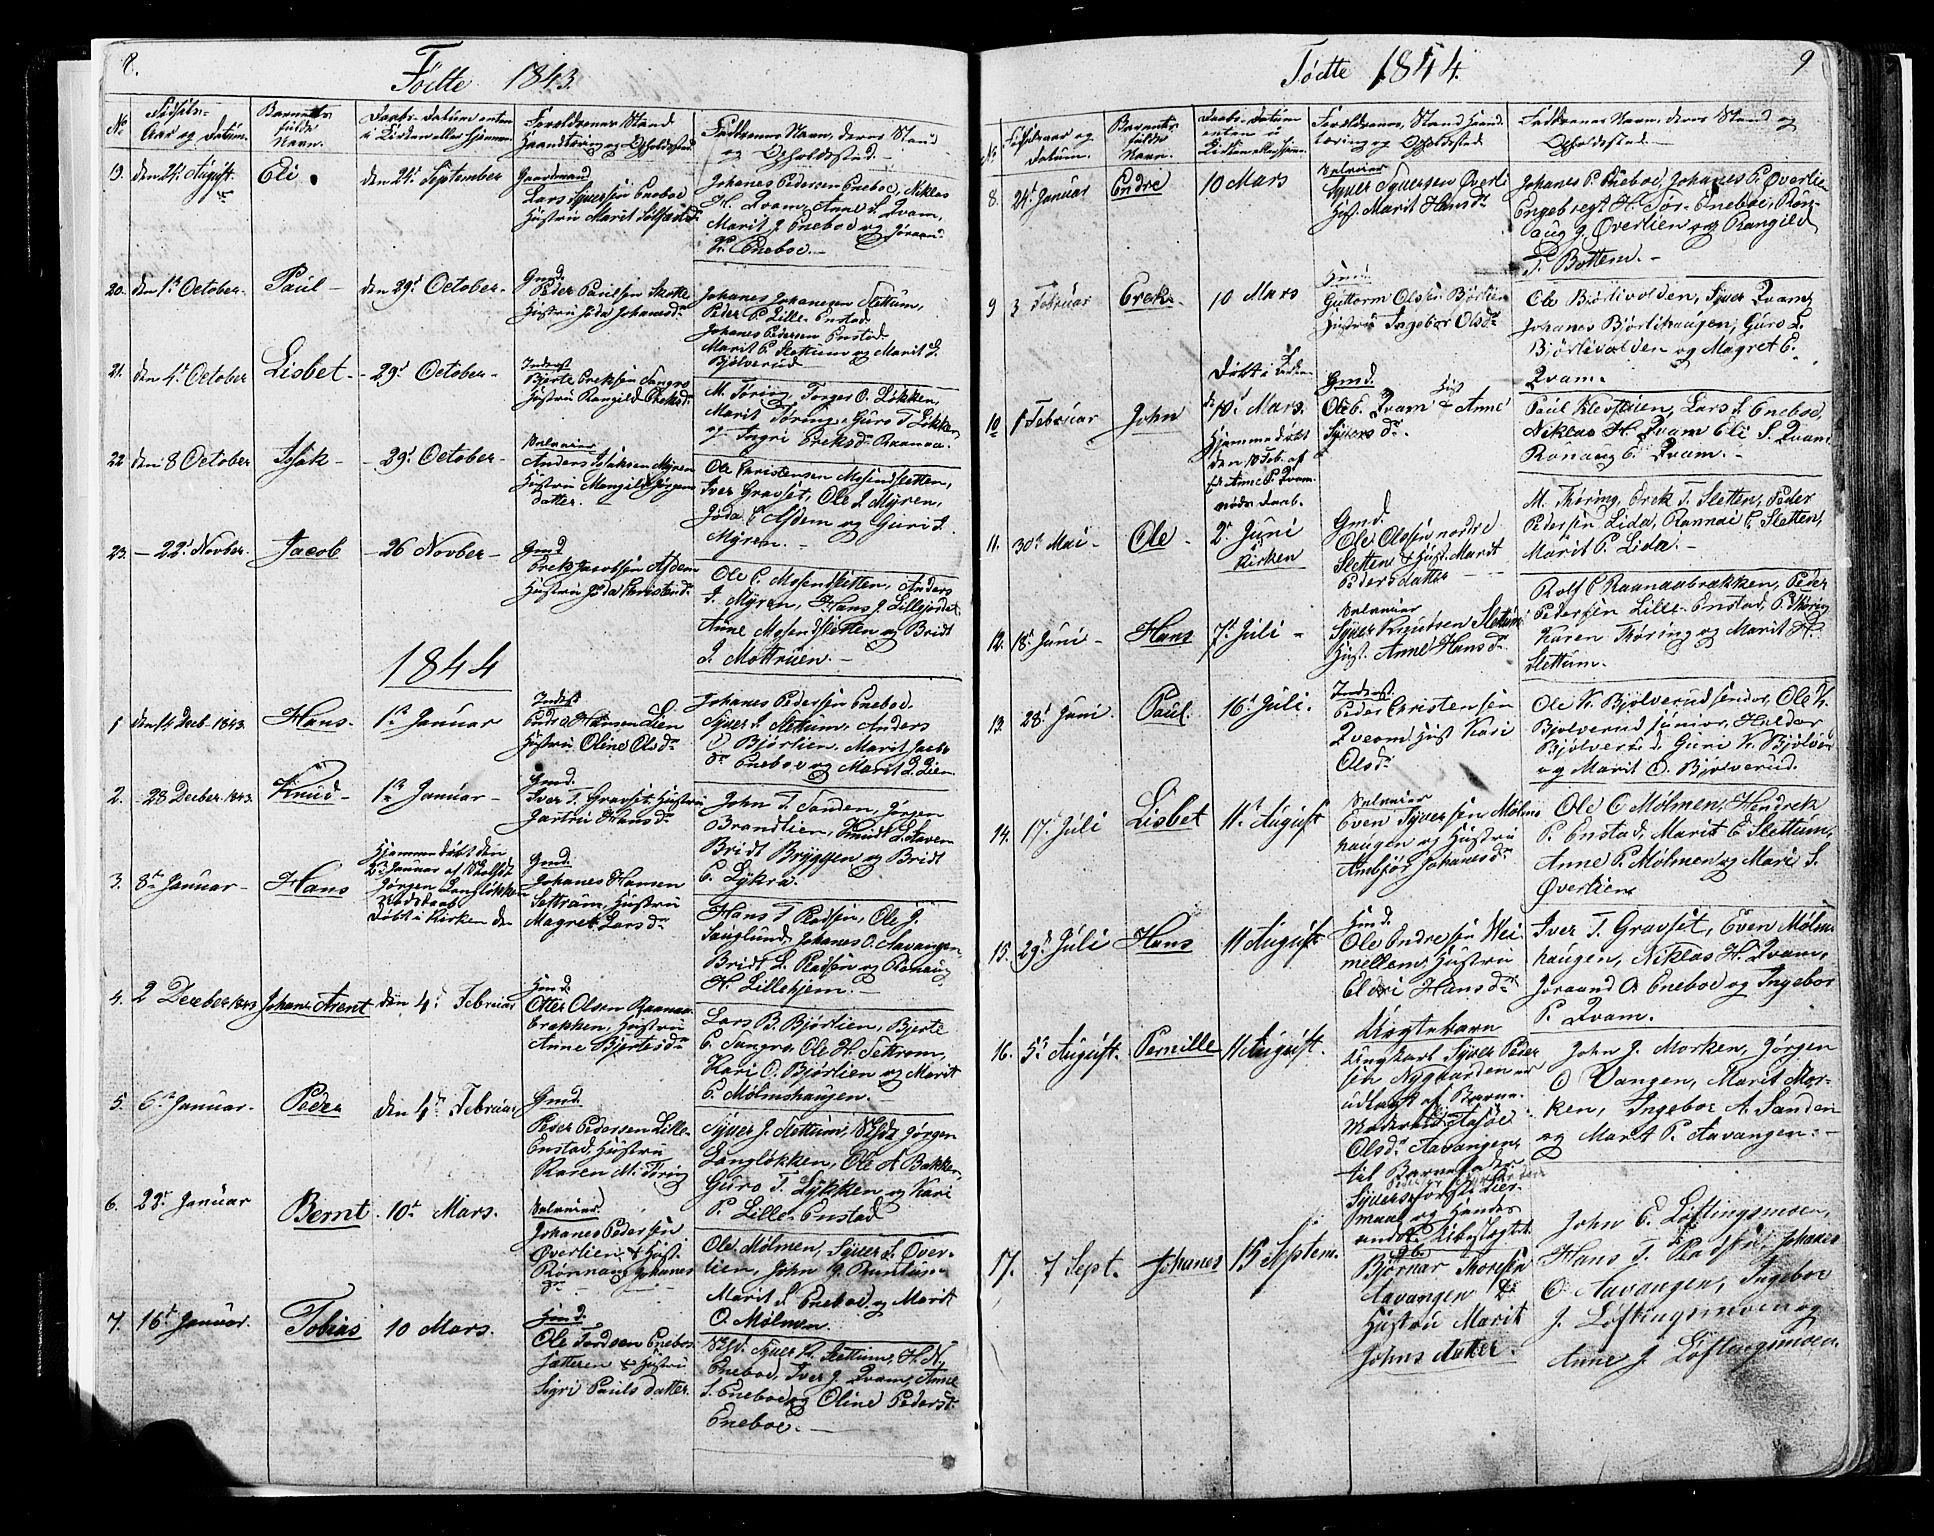 8.
Födte 1843.
No
Födsels-
Aar og Datum.
Barnets
fulde
Navn.
Daabs-Datum enten
i Kirken eller Hjemme
Forældrenes Stand
Haandtering og Opholdssted.
Faddrenes Navn, deres Stand
og Opholdssted.
19. den 24 August
Eli
den 24' September
Gaardmand
Lars Syversen Eneboe
Hustru Marit
Johanes Pedersen Eneboe, Niklas
H. Qvam, Anne S. Qvam,
Marit J. Eneboe og Joraand
Eneboe.
20. den 1' October.
Paul
den 29' October
Gmd.
Peder Paulsen
Hustru Joda Johansdr
Johanes Johanesen Slettum,
Peder P. Lille-Enstad
Johanes Pedersen Enstad
Marit E. Slettum og Marit J.
Bjølverud
21. den 4' October
Lisbet
29' October
Inderst
Bjorte Eriksen Tangro
Hustru Rangild Eriksdr
M. Tøring, Torger O. Løkken,
Marit Tøring, Guro T. Løkken
og Ingri Eriksdr Raanaa.
22 den 8 October
Isak
29' October
Selveier
Anders Isaksen Myren
Hustru Mongild Jørgens
datter.
Ole Christensen Mosendsletten,
Iver Gravset, Ole J. Myren,
Joda C. Asdem og Guri J.
Myren.
23. 22' Novber
Jacob
26 Novber
Gmd
Erek Jacobsen Asdem
Hustru Joda Christensdr
Ole C. Mosendsletten, Anders
J. Myren, Hans J. Lillejordet
Anne Mosendsletten og Bridt
J. Mottruen.
1844
1 den 14 Decb. 1843.
Hans
1' Januar
Inderst
Endre Hansen Lien
Hustru Oline Olsdr
Johanes Pedersen Eneboe,
Syver S. Slettum, Anders
O Bjørlien, Marit Jacobs
dr Eneboe og Marit L. Lien
2. 28 Decber 1843.
Knud
1' Januar
Gmd.
Iver T. Gravset, Hustru
Jartru Hansdr
John T. Sanden, Jørgen
Brandlien, Knudt L. Staven
Bridt Bryggen og Bridt
E. Lykra.
3. 8' Januar
Hans
Hjemmedøbt den
Januar af Skolhdr
Jørgen Langløkken
Døbt i Kirken den
Gmd.
Johanes Hansen
Sattram, Hustru
Magret Larsdr
Hans T. Stadsøien, Ole J.
Sauglund, Johanes O. Aavangen
Bridt L. Stadsøien og Ronaug
H. Lillehjem.
4. 2 Decber 1843
Johan Arent
den 4' Februar
Huusmd.
Otter Olsen Raanaa-
brekken, Hustru
Anne Bjortesdr
Lars B. Bjørlien, Bjorte
E. Tangro, Ole H. Sekrom,
Kari O. Bjørlien og Marit
E. Mølmshaugen.
5. 6' Januar
Peder
den 4' Februar
Gmd.
Peder Pedersen Lille-
Enstad, Hustru
Karen M. Tøring
Syver J. Slettum, Skhdr Jørgen
Langløkken, Ole A Bakken
Guro T. Lykken og Kari
P. Lille-Enstad
6. 22' Januar
Bernt
10' Mars.
Selveier
Johanes Pedersen
Øverlien & Hust.
Rønnaug Johanes
dr
Ole Mølmen, Syver S. Øver-
lien, John J. Runtum
Marit S. Eneboe og Marit
O. Mølmen.
7. 16' Januar.
Tobias
10 Mars.
Husmd.
Ole Tordsen Eneboe
Satteren & Hustru
Sigri Pauls datter
Syver K. Slettum, H. N.
Eneboe, Iver J. Qvam, Anne
S. Eneboe og Oline Pedersdr
Eneboe.
9
Födte 1844.
No
Födselsaar og
Datum.
Barnets
fulde
Navn
Daabs-Datum
enten i
Kirken eller Hjemme
Forældrenes Stand Haand-
tering og Opholdssted
Faddrenes Navn, deres Stand og
Opholdssted.
8. 24' Januar
Endre
10 Mars
Selveier
Syver Syversen Øverli
Hust. Marit Hansdr
Johanes P. Eneboe, Johanes P. Øverlien
Engebregt H. Tør-Eneboe, Ron-
aug J. Øverlien og Rangild
T. Bottem.
9 3 Februar
Erek
10 Mars
Husmd.
Guttorm Olsen Bjørlien
Hustru Ingebor Olsdr
Ole Bjørlivolden, Syver Qvam,
Johanes Bjørlihaugen, Guro L.
Bjørlivolden og Magret E.
Qvam.
10 1 Februar
John
Døbt i Kirken
d. 10' Mars.
Hjemmedøbt
den 10 Feb. af
Anne O. Qvam
nøds Daab.
Gmd.
Ole E. Qvam & Hust Anne
Syversdr.
Paul Klevstuen, Lars S. Eneboe,
Niklas H. Qvam Eli S. Qvam
Ronaug E. Qvam.
11. 30' Mai
Ole
2' Juni
i Kirken
Gmd.
Ole Olsen nordre
Sletten & Hust. Marit
Pedersdatter
M. Thøring, Erek T. Sletten, Peder
Pedersen Lida, Rannei E. Sletten,
Marit P. Lida.
12. 18' Juni
Hans
7' Juli
Selveier
Syver Knudsen Slettum
Hust. Anne Hansdr
Rolf C Raanaabrækken, Peder
Pedersen Lille-Enstad, P. Thøring
Karen Thøring og Marit H.
Slettum.
13. 28' Juni.
Paul.
16' Juli.
Inderst.
Peder Christensen
Qveom. Hust Kari
Olsdr
Ole K. Bjølverud senior, Ole K.
Bjølverud junior, Haldor
Bjølverud, Guri K. Bjølverud
og Marit O. Bjølverud.
14. 17' Juli
Lisbet
11' August
Selveier
Even Syversen Mølms
haugen og Hustru
Ambjør Johanesdr
Ole O Mølmen, Hendrek
P. Enstad, Marit E. Slettum,
Anne P. Mølmen og Mari S.
Øverlien
15. 29' Juli
Hans
11 August
Husmd.
Ole Endresen Wei-
mellem, Hustru
Eldri Hansdr
Iver T. Gravset, Even Mølms-
haugen, Niklas H. Qvam,
Joraand O. Eneboe og Ingebor
P. Qvam.
16. 5' August.
Pernille
11 August.
Uægtebarn
Ungkarl Syver Peder
sen Nygaarden er
udlagt af Barne-
Moderen
Olsdr Aavangen
til Barnefader
John J. Morken, Jørgen
O Vangen, Marit Mor-
ken, Ingebor A. Sanden
og Marit P. Aavangen.
17. 7 Sept.
Johanes
15 Septem.
Bjørnar Thoresen
Aavangen &
Hustru Marit
Johns datter.
John E. Løftingsmoen,
Hans T. Stadsøien Johanes
O. Aavangen, Ingebor
J. Løftingsmoen og
Anne J. Løftingsmoen.